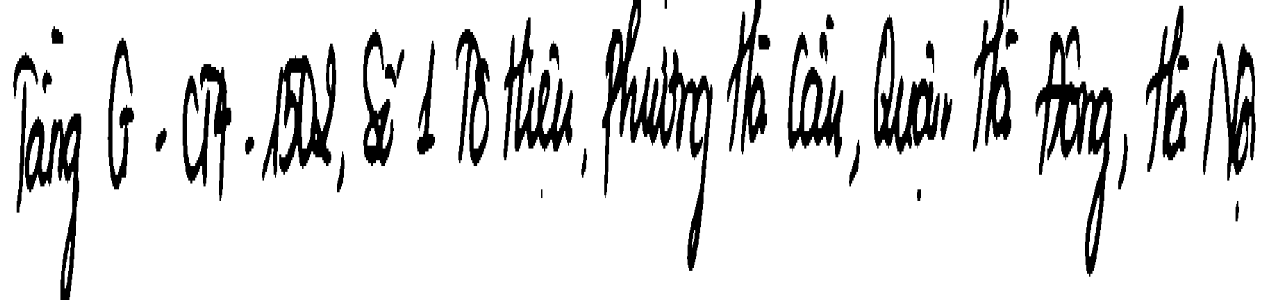 Tầng 6 - CT4 - 1502, Số 1 Tô Hiệu, Phường Hà Cầu, Quận Hà Đông, Hà Nội